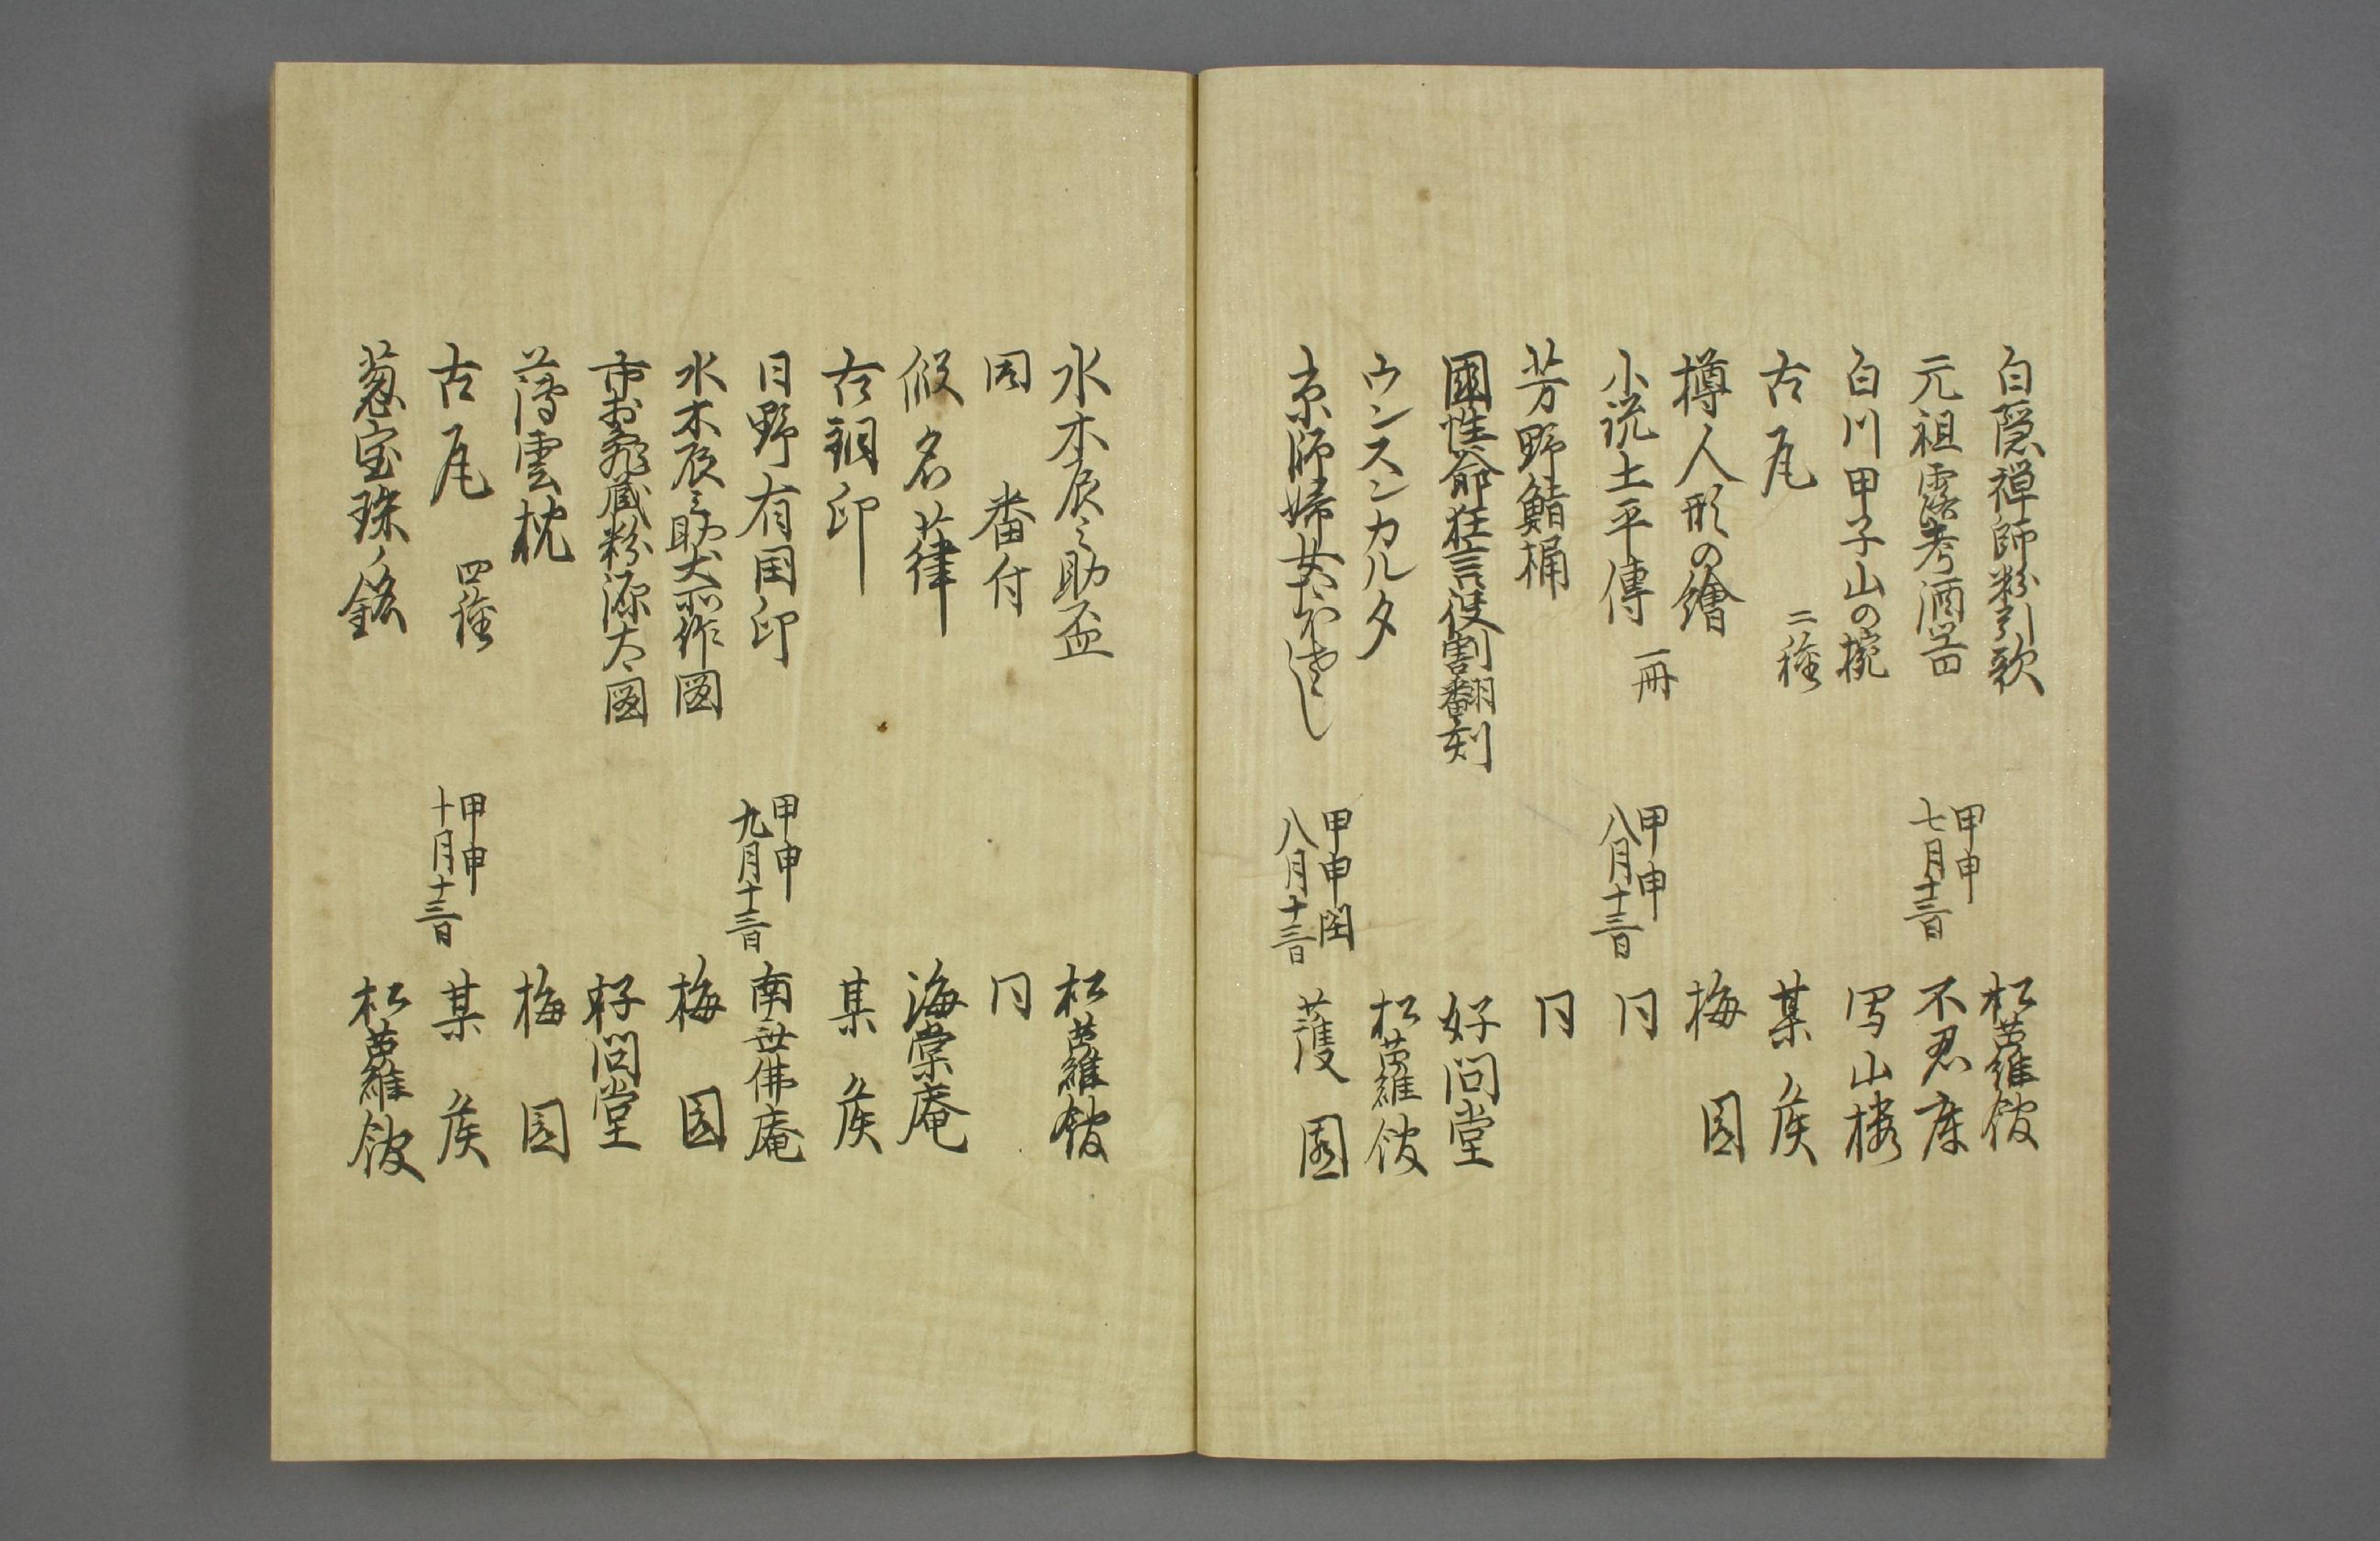 白隠禅師粉引歌　松蘿舘
元祖露考酒噐　甲申七月十三日　不忍庵
白川甲子山の椀　写山楼
古瓦　二種　某侯
樽人形の繪　梅園
小説土平傳　一冊　甲申八月十三日　同
芳野鮨桶　同
國性爺狂言役割番翻刻　好問堂
ウンスンカルタ　松蘿舘
京師婦女　甲申閏八月十三日　蓑園
水木辰之助盃　松蘿舘
同　番付　同
假名葎　海棠庵
古銅印　某侯
日野有国印　甲申九月十三日　南無佛庵
水木辰之助犬所作図　梅園
市村羽左衛門蔵粉源太図　好問堂
薄雲枕　梅園
古瓦　四種　甲申十月十三日　某侯
葱宝珠ノ銘　松蘿舘